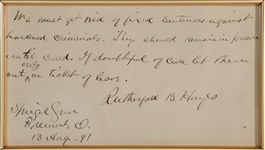 We must get rid of fixed sentences against
hardened criminals. They should remain in prison
until cured. If doubtful of cure let them
out only on ticket of leave.
Rutherford B Hayes
Spiegel Grove
Fremont, O.
13 Aug - 91